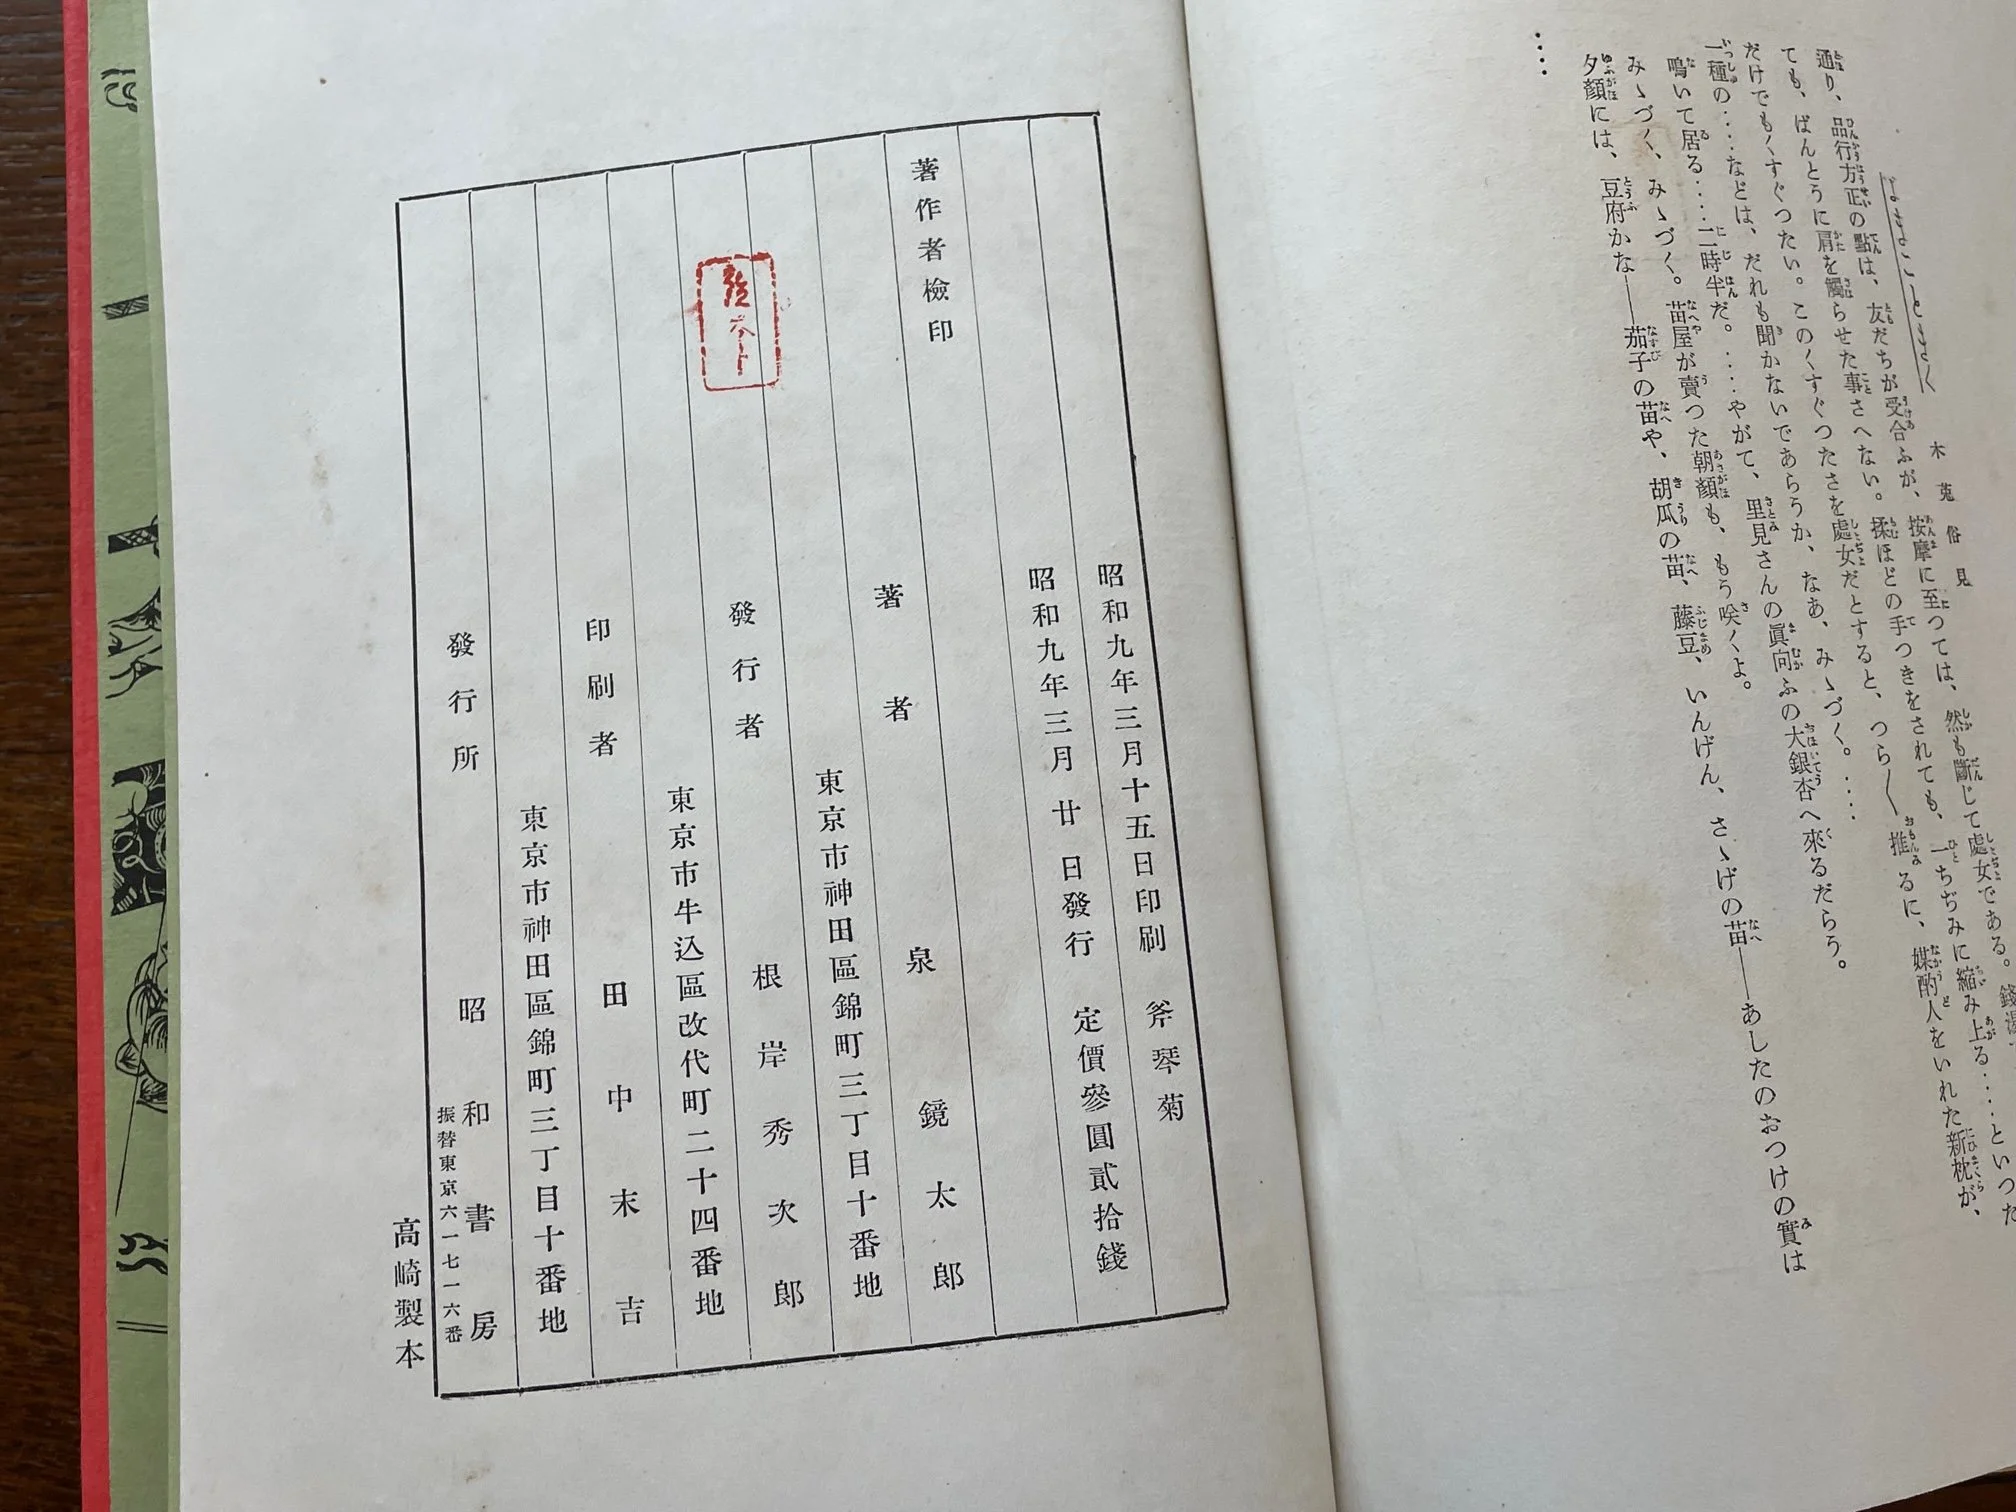 よきことをきく
木菟俗見
通り、品行方正の點は、友だちが受合ふが、按摩に至つては、然も斷じて處女である。錢湯で
ても、ばんとうに肩を觸らせた事さへない。揉ほどの手つきをされても、一ちぢみに縮み上る‥‥といつた
だけでもくすぐつたい。このくすぐつたさを處女だとすると、つら〳〵推るに、媒酌人をいれた新枕が、
一種の‥‥などは、だれも聞かないであらうか、なあ、みゝづく。‥‥
鳴いて居る‥‥二時半だ。‥‥やがて、里見さんの眞向ふの大銀杏へ來るだらう。
みゝづく、みゝづく。苗屋が賣つた朝顏も、もう咲くよ。
夕顏には、豆府かな――茄子の苗や、胡瓜の苗、藤豆、いんげん、さゝげの苗――あしたのおつけの實は
‥‥
昭和九年三月十五日印刷　斧琴菊
昭和九年三月廿日發行　定價參圓貳拾錢
著作者檢印
著者　泉鏡太郎
東京市神田區錦町三丁目十番地
發行者　根岸秀次郎
東京市牛込區改代町二十四番地
印刷者　田中末吉
東京市神田區錦町三丁目十番地
發行所　昭和書房
振替東京六一七一六番
高崎製本